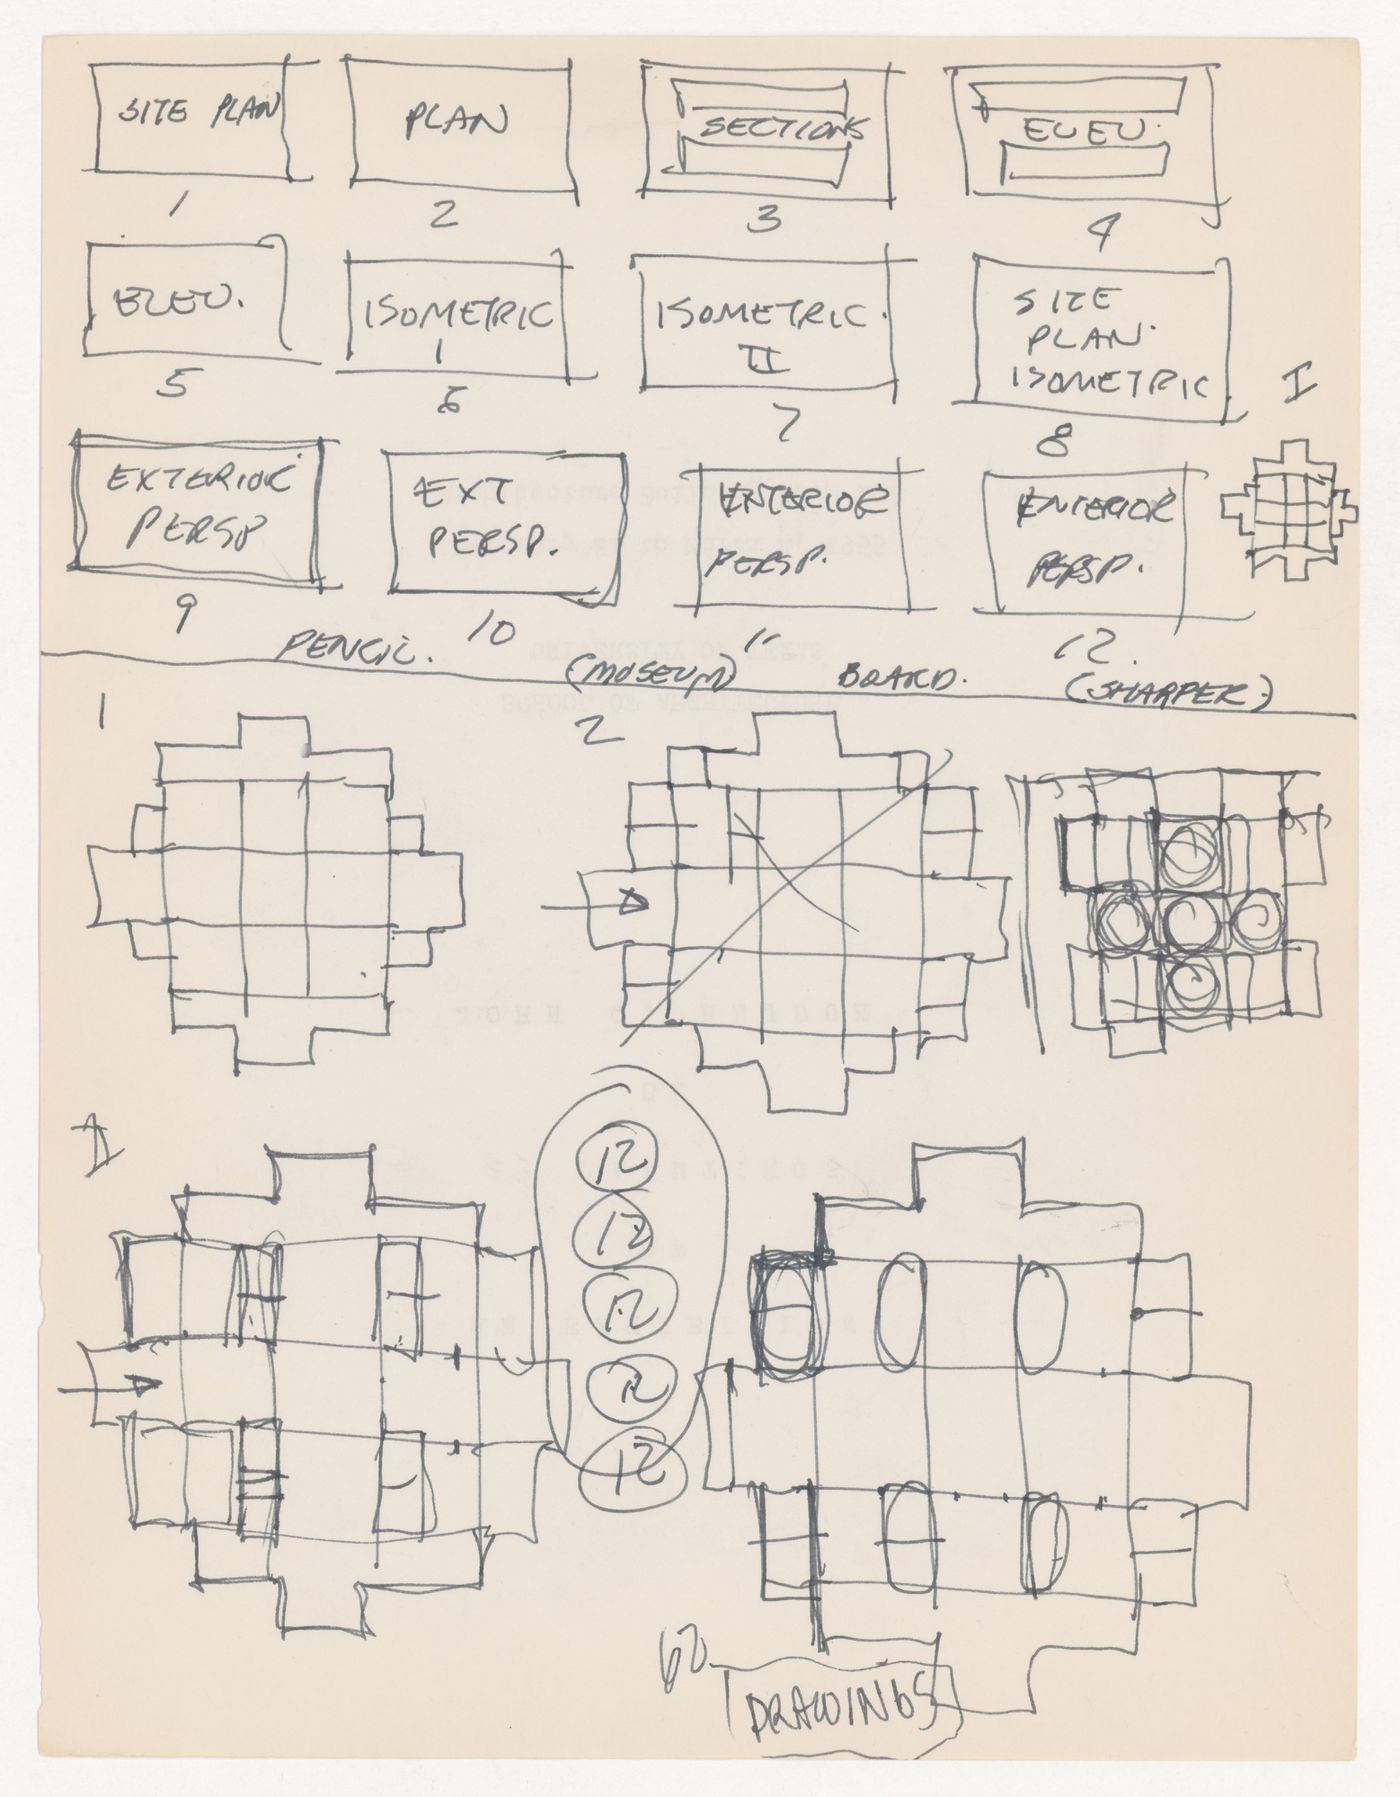 SITE PLAN
1
PLAN
2
SECTIONS
3
ELEV.
4
ELEV.
5
ISOMETRIC
I
6
ISOMETRIC.
II
7
SITE
PLAN.
ISOMETRIC
8
I
EXTERIOR
PERSP
9
EXT
PERSP.
10
INTERIOR
PERSP.
11
INTERIOR
PERSP.
12.
PENCIL. (MUSEUM) BOARD. (SHARPER)
1
2
12
12
12
12
12
60
DRAWINGS